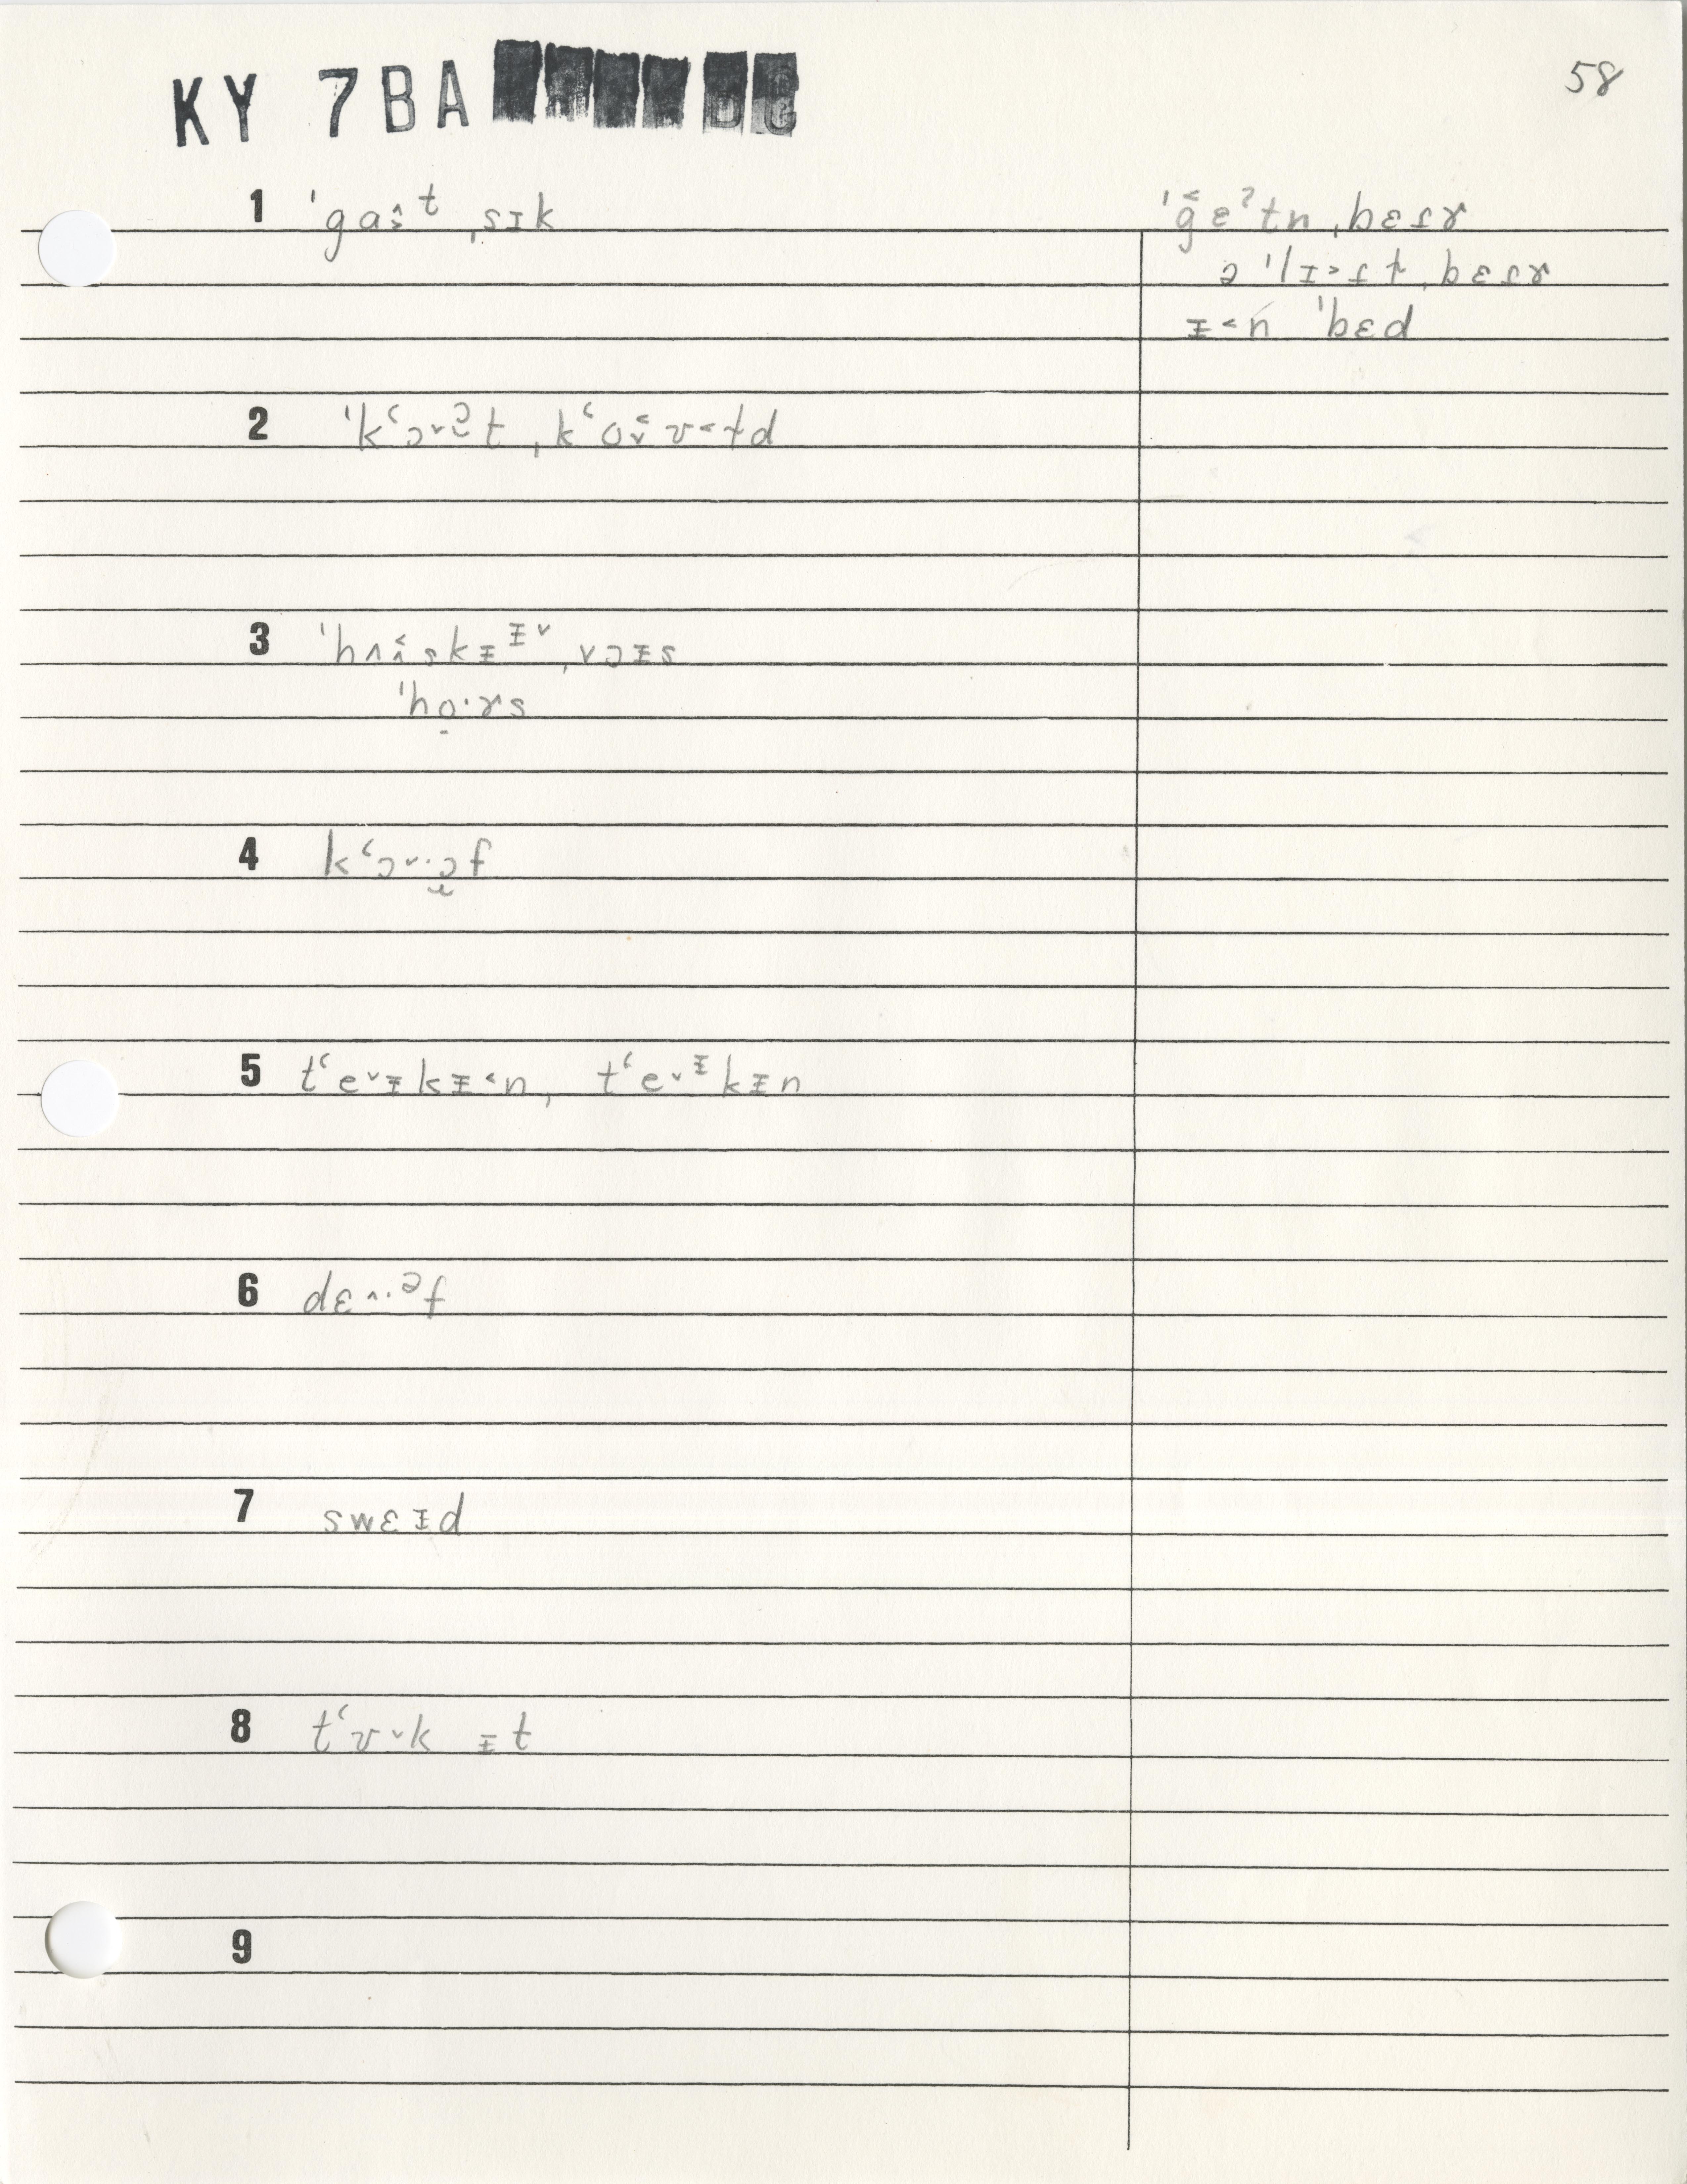 KY 7BA
58
1 ˈgɑɪ̂ᵗ ˌsɪk
ˈǧɛˀtn ˌbɛɾɚ
ə ˈlɪ˃ɾɫ ˌbɛɾɚ
ɪ˂n ˈbɛd
2 ˈkʻɔ˅t ˌkʻoʊ˂ɫd
3 ˈhʌskɪ ˌvɔɪs
ˈho̠·ɚs
4 kʻɔ˅·ɔ̯f
5 tʻe˅ɨkɨ˂n, tʻe˅ᶤkɨn
6 dɛ˄·ᵊf
7 swɛɨd
8 tʻʊ˅k ɨt
9